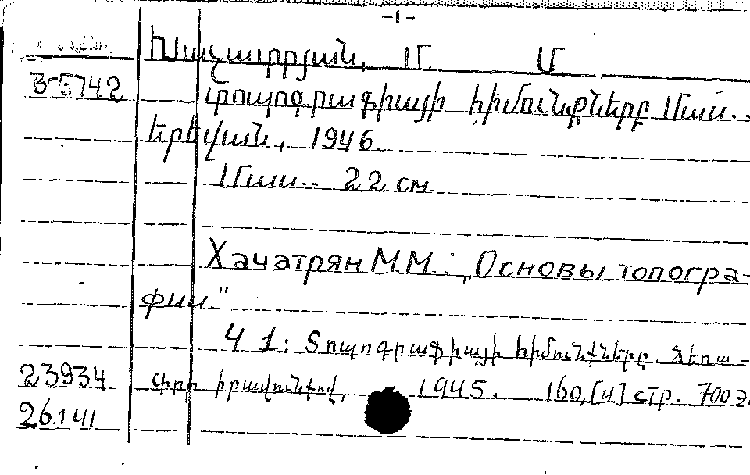 -1-
Խաչատրյան, Մ. Մ
В-5742 տոպոգրաֆիայի հիմունքները Մաս.
Երևան, 1946.
1 Մաս. 22 см
Хачатрян М.М.: „Основы топогра-
фии"
Ч 1: Տոպոգրաֆիայի հիմունքները. Ձեռա-
23934 գրի իրավունքով, 1945. 160,[4] стр. 700 э.
26141